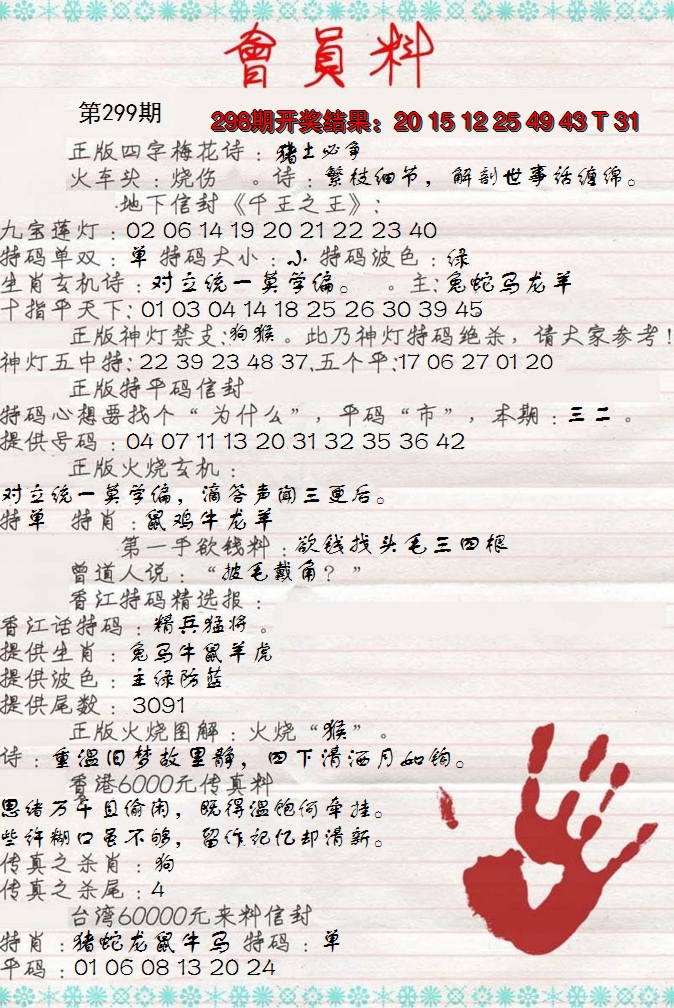 會員料
第299期
298期开奖结果：20 15 12 25 49 43 T 31
正版四字梅花诗：猪土必争
火车头：烧伤 。诗：繁枝细节，解剖世事话缠绵。
地下信封《千王之王》：
九宝莲灯：02 06 14 19 20 21 22 23 40
特码单双：单 特码大小：小 特码波色：绿
生肖玄机诗：对立统一莫学偏。 。主：兔蛇马龙羊
十指平天下：01 03 04 14 18 25 26 30 39 45
正版神灯禁支：狗猴。此乃神灯特码绝杀，请大家参考！
神灯五中特：22 39 23 48 37.五个平：17 06 27 01 20
正版特平码信封
特码心想要找个“为什么”，平码“市”，本期：三二。
提供号码：04 07 11 13 20 31 32 35 36 42
正版火烧玄机：
对立统一莫学偏，滴答声闻三更后。
特单 特肖：鼠鸡牛龙羊
第一手欲钱料：欲钱找头毛三四根
曾道人说：“披毛戴角？”
香江特码精选报：
香江话特码：精兵猛将。
提供生肖：兔马牛鼠羊虎
提供波色：主绿防蓝
提供尾数：3091
正版火烧图解：火烧“猴”。
诗：重温旧梦故里静，四下清洒月如钩。
香港6000元传真料
思绪万千且偷闲，既得温饱何牵挂。
些许糊口虽不够，留作记忆却清新。
传真之杀肖：狗
传真之杀尾：4
台湾60000元来料信封
特肖：猪蛇龙鼠牛马 特码：单
平码：01 06 08 13 20 24